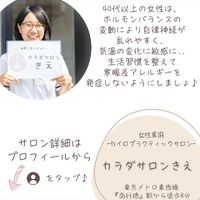 カラダサロン
きえ
40代以上の女性は、
ホルモンバランスの
変動により自律神経が
乱れやすく、
気温の変化に敏感に..
生活習慣を整えて
寒暖差アレルギーを
発症しないようにしましょ♪
サロン詳細は
プロフィールから
をタップ♪
女性専用
-カイロプラクティックサロン-
カラダサロンきえ
東京メトロ東西線
『南行徳』駅から徒歩8分